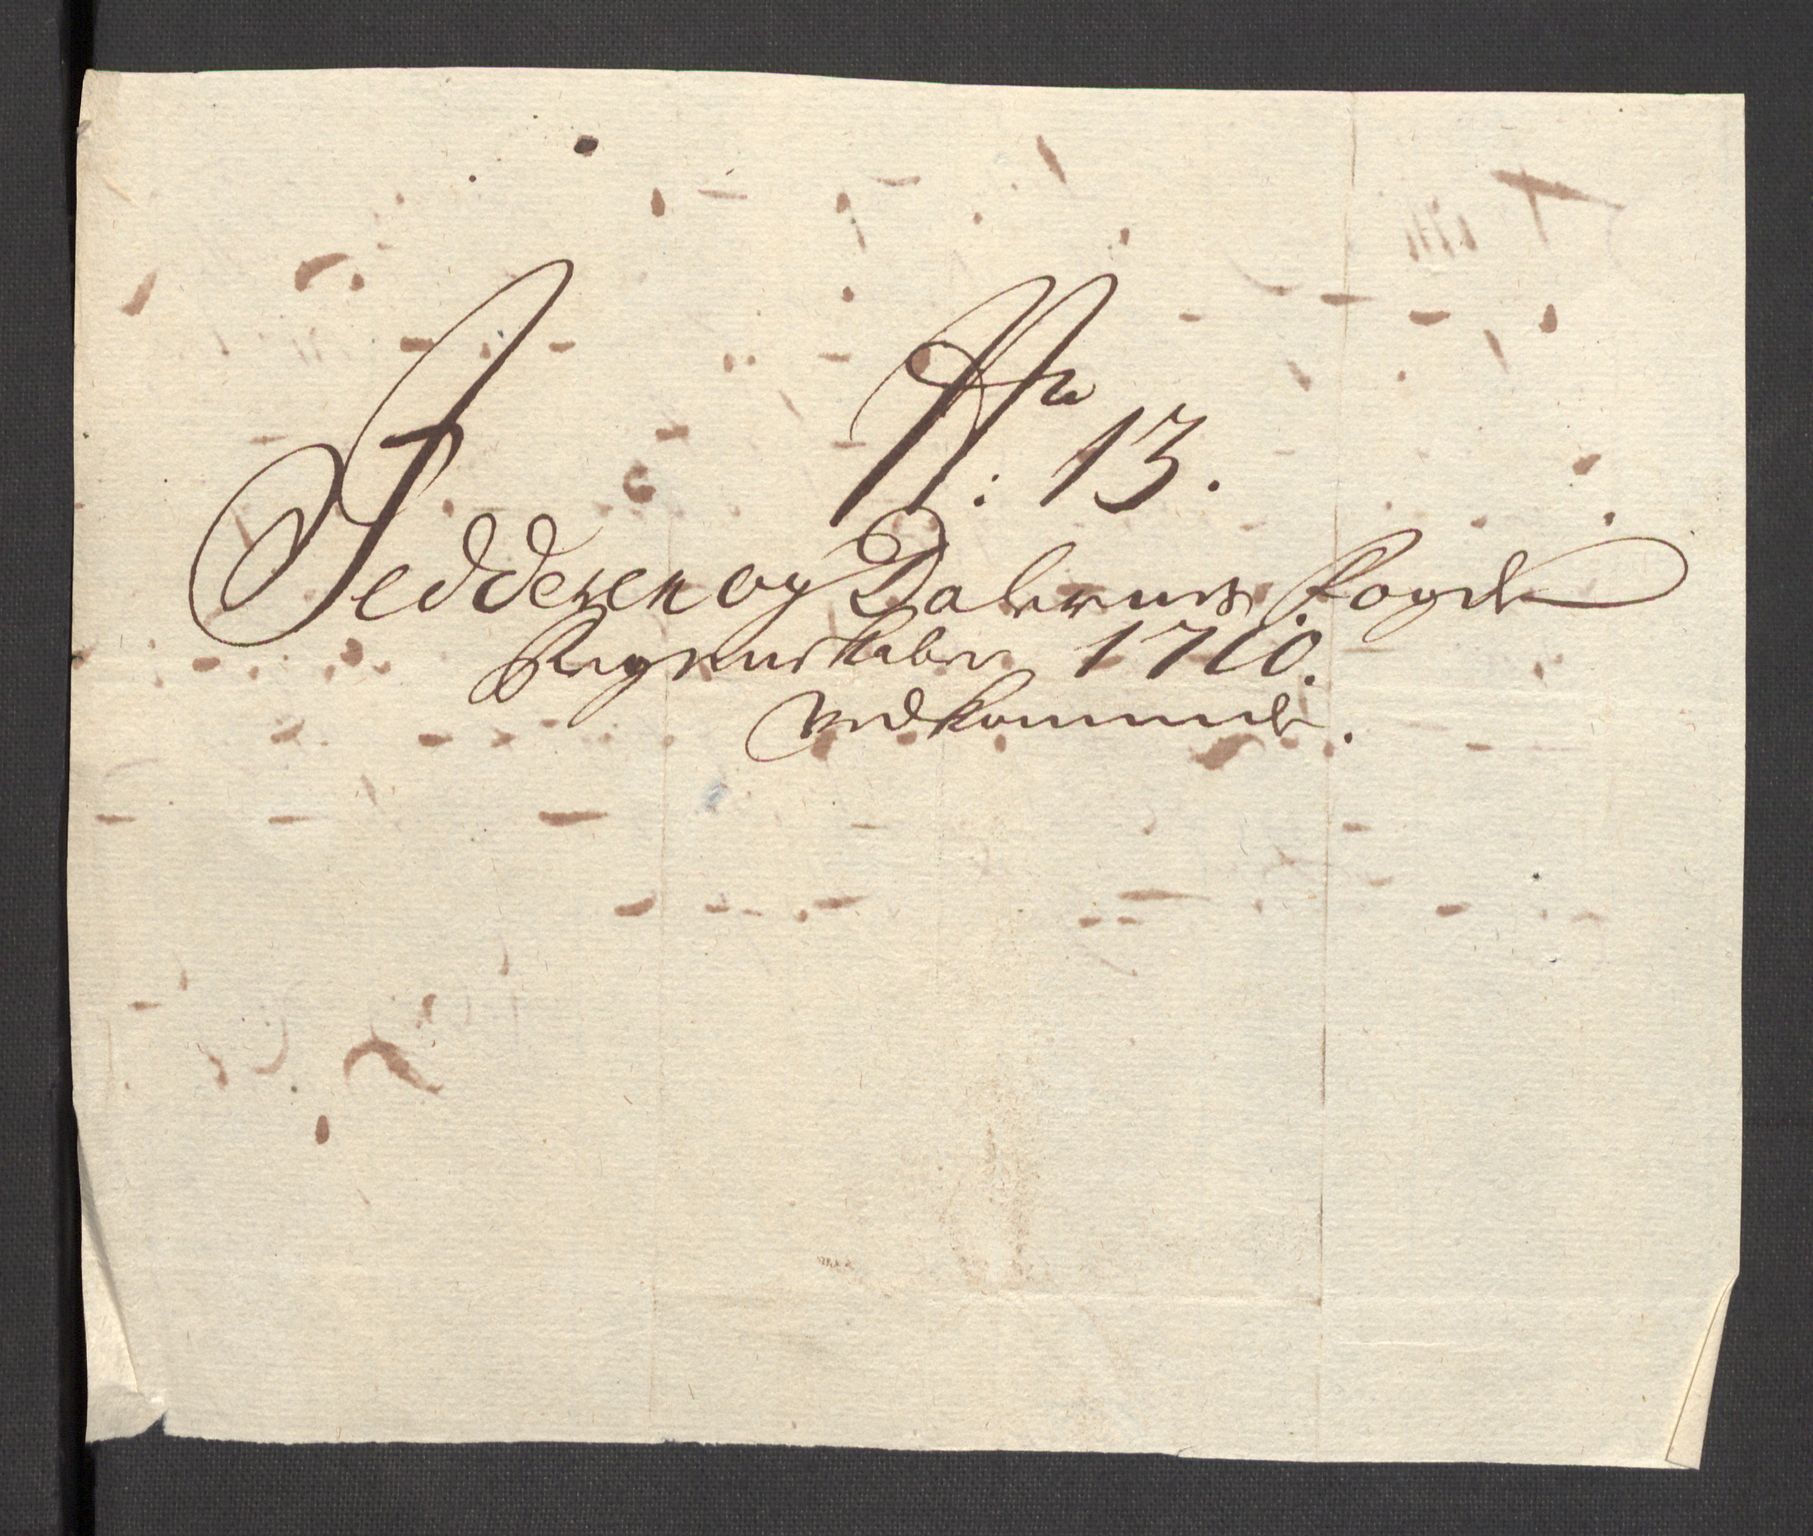 No: 13.
Jedderen og Dalernes Fogde
Regenskaber 1710.
vedkommende.